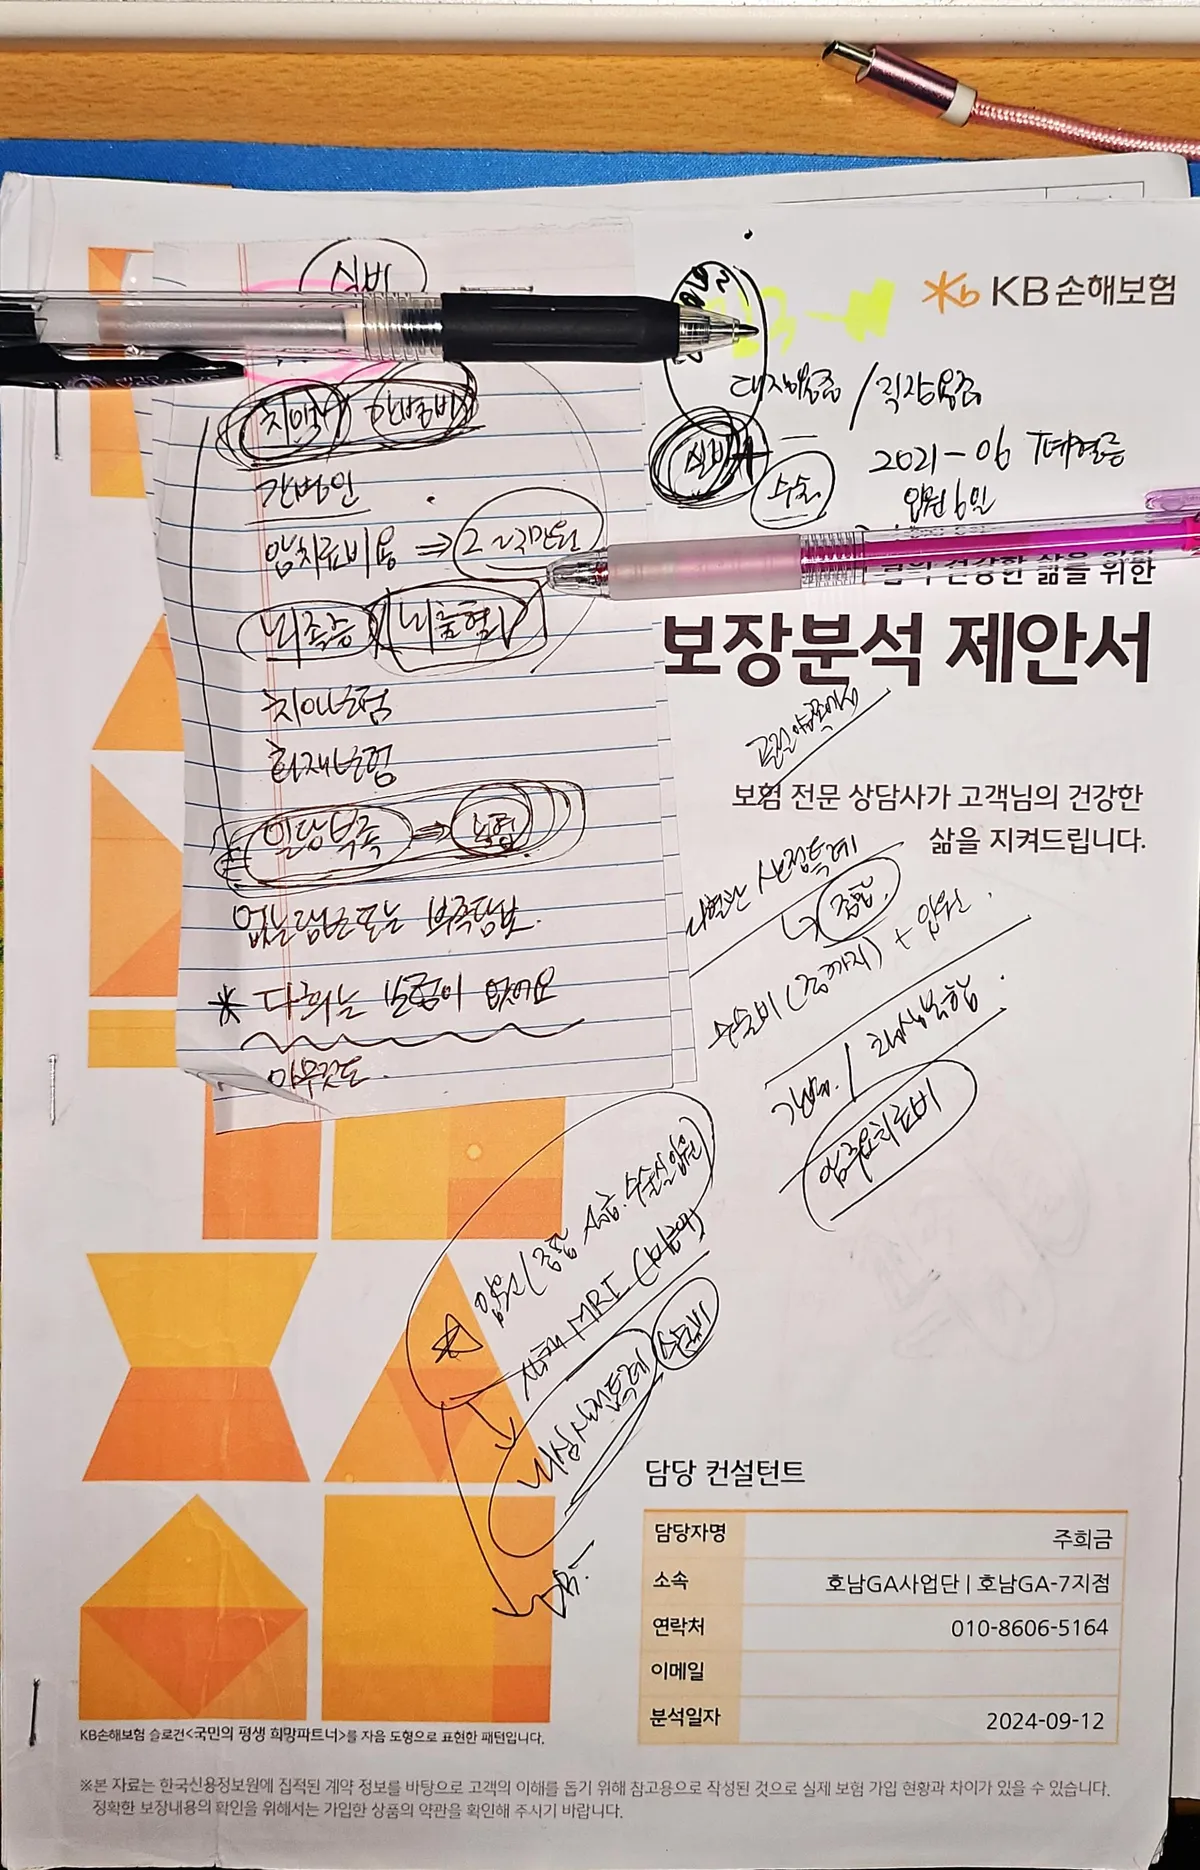 실비
치매 간병비
간병인
암치료비용 ⇒ 2~3만원
뇌졸증 뇌출혈
치아보험
화재보험
일당부족 ⇒ 보험
없는담보또는 부족담보.
* 다희는 보험이 없어요
아무것도.
KB손해보험
대장용종 / 직장용종
실비+
수술
2021-06
입원6인
님의 건강한 삶을 위한
보장분석 제안서
보험 전문 상담사가 고객님의 건강한
삶을 지켜드립니다.
산정특례
종합.
수술비 ( ) + 입원.
암주요치료비
입원(종합 상급.수술실입원
MRI (
뇌심산정특례
수술비
담당 컨설턴트
담당자명 주희금
소속 호남GA사업단 | 호남GA-7지점
연락처 010-8606-5164
이메일
분석일자 2024-09-12
KB손해보험 슬로건<국민의 평생 희망파트너>를 자음 도형으로 표현한 패턴입니다.
※본 자료는 한국신용정보원에 집적된 계약 정보를 바탕으로 고객의 이해를 돕기 위해 참고용으로 작성된 것으로 실제 보험 가입 현황과 차이가 있을 수 있습니다.
정확한 보장내용의 확인을 위해서는 가입한 상품의 약관을 확인해 주시기 바랍니다.